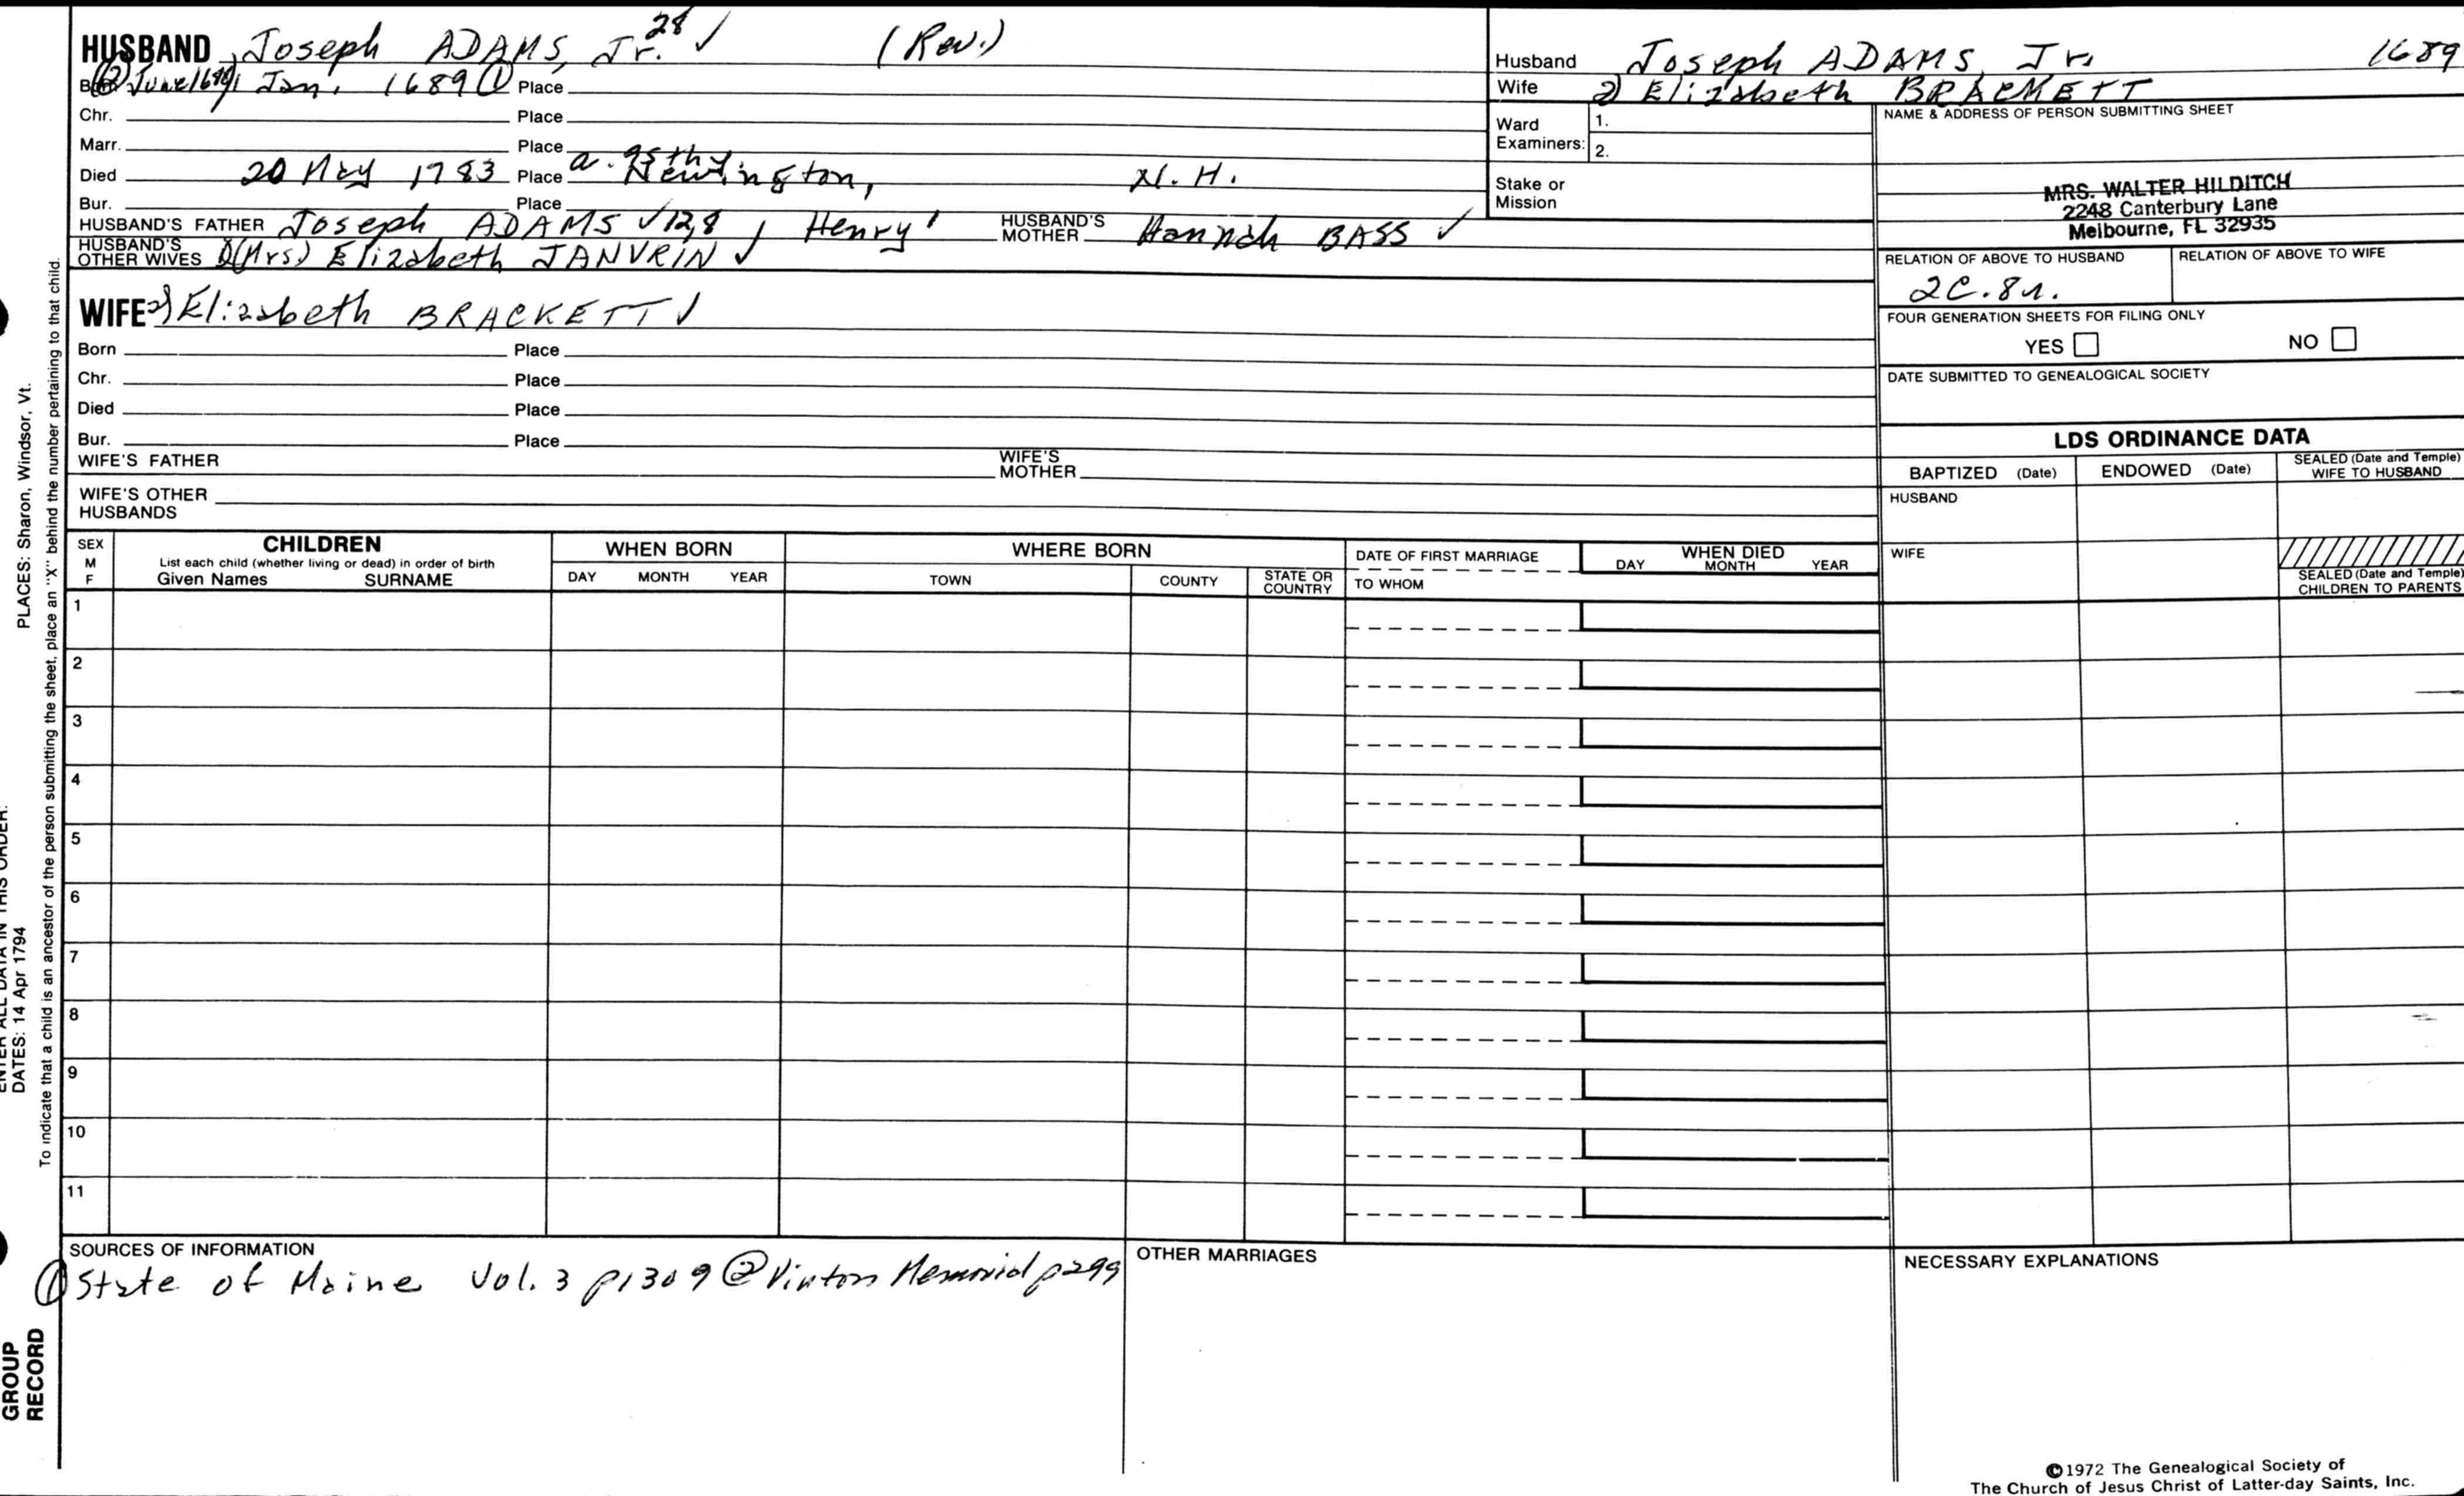 HUSBAND Joseph ADAMS, Jr. 28 ✓ (Rev.)
Born ② June 1688 1 Jan. 1689 ① Place
Chr. Place
Marr. Place
a. 95th y.
Died 20 May 1783 Place Newington, N. H.
Bur. Place
HUSBAND'S FATHER Joseph ADAMS ✓ 12,8 , Henry 1 HUSBAND'S MOTHER Hannah BASS ✓
HUSBAND'S OTHER WIVES 1) (Mrs) Elizabeth JANVRIN ✓
WIFE 2) Elizabeth BRACKETT ✓
Born Place
Chr. Place
Died Place
Bur. Place
WIFE'S FATHER WIFE'S MOTHER
WIFE'S OTHER HUSBANDS
Husband Joseph ADAMS, Jr. 1689
Wife 2) Elizabeth BRACKETT
Ward Examiners: 1.
2.
Stake or Mission
NAME & ADDRESS OF PERSON SUBMITTING SHEET
MRS. WALTER HILDITCH
2248 Canterbury Lane
Melbourne, FL 32935
RELATION OF ABOVE TO HUSBAND RELATION OF ABOVE TO WIFE
2C.8r.
FOUR GENERATION SHEETS FOR FILING ONLY
YES NO
DATE SUBMITTED TO GENEALOGICAL SOCIETY
LDS ORDINANCE DATA
BAPTIZED (Date) ENDOWED (Date) SEALED (Date and Temple) WIFE TO HUSBAND
HUSBAND
WIFE
SEALED (Date and Temple) CHILDREN TO PARENTS
SEX M F CHILDREN WHEN BORN WHERE BORN DATE OF FIRST MARRIAGE WHEN DIED
List each child (whether living or dead) in order of birth
Given Names SURNAME DAY MONTH YEAR TOWN COUNTY STATE OR COUNTRY TO WHOM DAY MONTH YEAR
1
2
3
4
5
6
7
8
9
10
11
SOURCES OF INFORMATION
① State of Maine Vol. 3 p1309 ② Vinton Memorial p299
OTHER MARRIAGES
NECESSARY EXPLANATIONS
©1972 The Genealogical Society of
The Church of Jesus Christ of Latter-day Saints, Inc.
PLACES: Sharon, Windsor, Vt.
ENTER ALL DATA IN THIS ORDER:
DATES: 14 Apr 1794
To indicate that a child is an ancestor of the person submitting the sheet, place an "X" behind the number pertaining to that child.
GROUP
RECORD